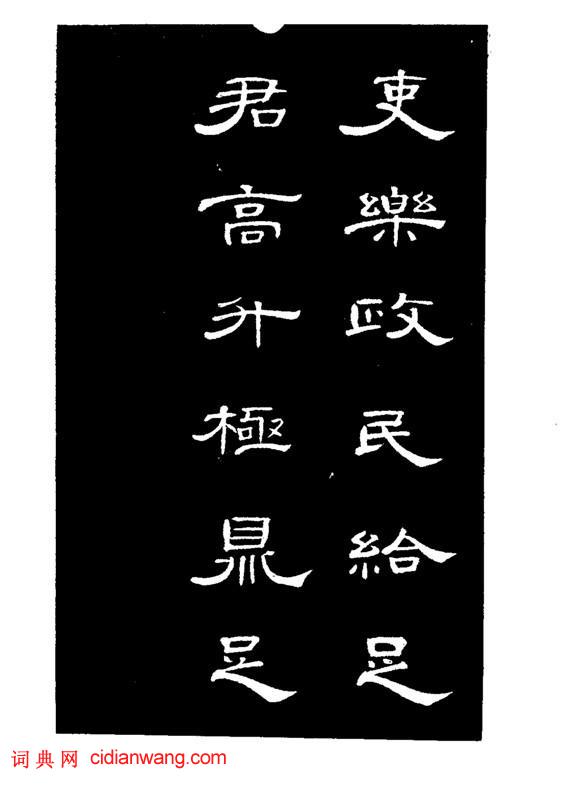 吏樂政民給足
君高升極鼎足
词典网 cidianwang.com